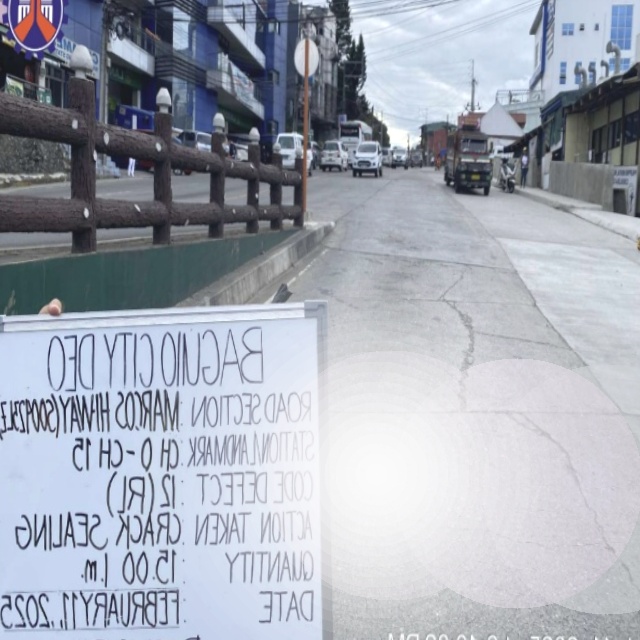 BAGUIO CITY DEO
ROAD SECTION : MARCOS HIWAY
STATION/LANDMARK: CH 0 - CH 15
CODE DEFECT : 12 (R1)
ACTION TAKEN : CRACK SEALING
QUANTITY : 15.00 l.m.
DATE : FEBRUARY 11, 2025